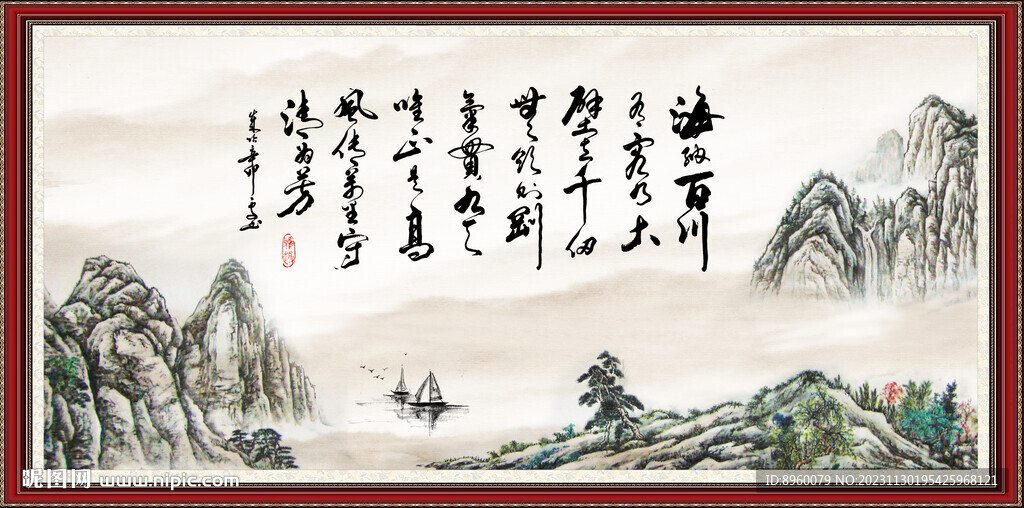 海纳百川
有容乃大
壁立千仞
無欲则剛
氣貫九天
唯正是高
風传萬里守
清为芳
昵图网 www.nipic.com
ID:8960079 NO:20231130195425968121